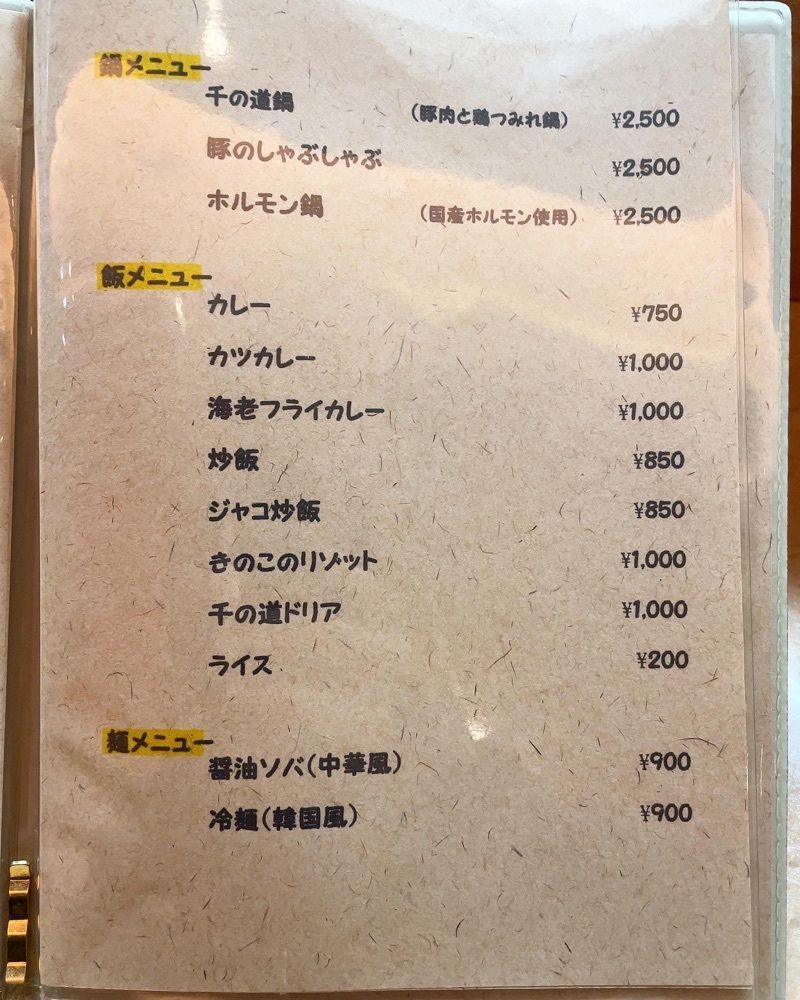 鍋メニュー
千の道鍋 (豚肉と鶏つみれ鍋) ¥2,500
豚のしゃぶしゃぶ ¥2,500
ホルモン鍋 (国産ホルモン使用) ¥2,500
飯メニュー
カレー ¥750
カツカレー ¥1,000
海老フライカレー ¥1,000
炒飯 ¥850
ジャコ炒飯 ¥850
きのこのリゾット ¥1,000
千の道ドリア ¥1,000
ライス ¥200
麺メニュー
醤油ソバ(中華風) ¥900
冷麺(韓国風) ¥900